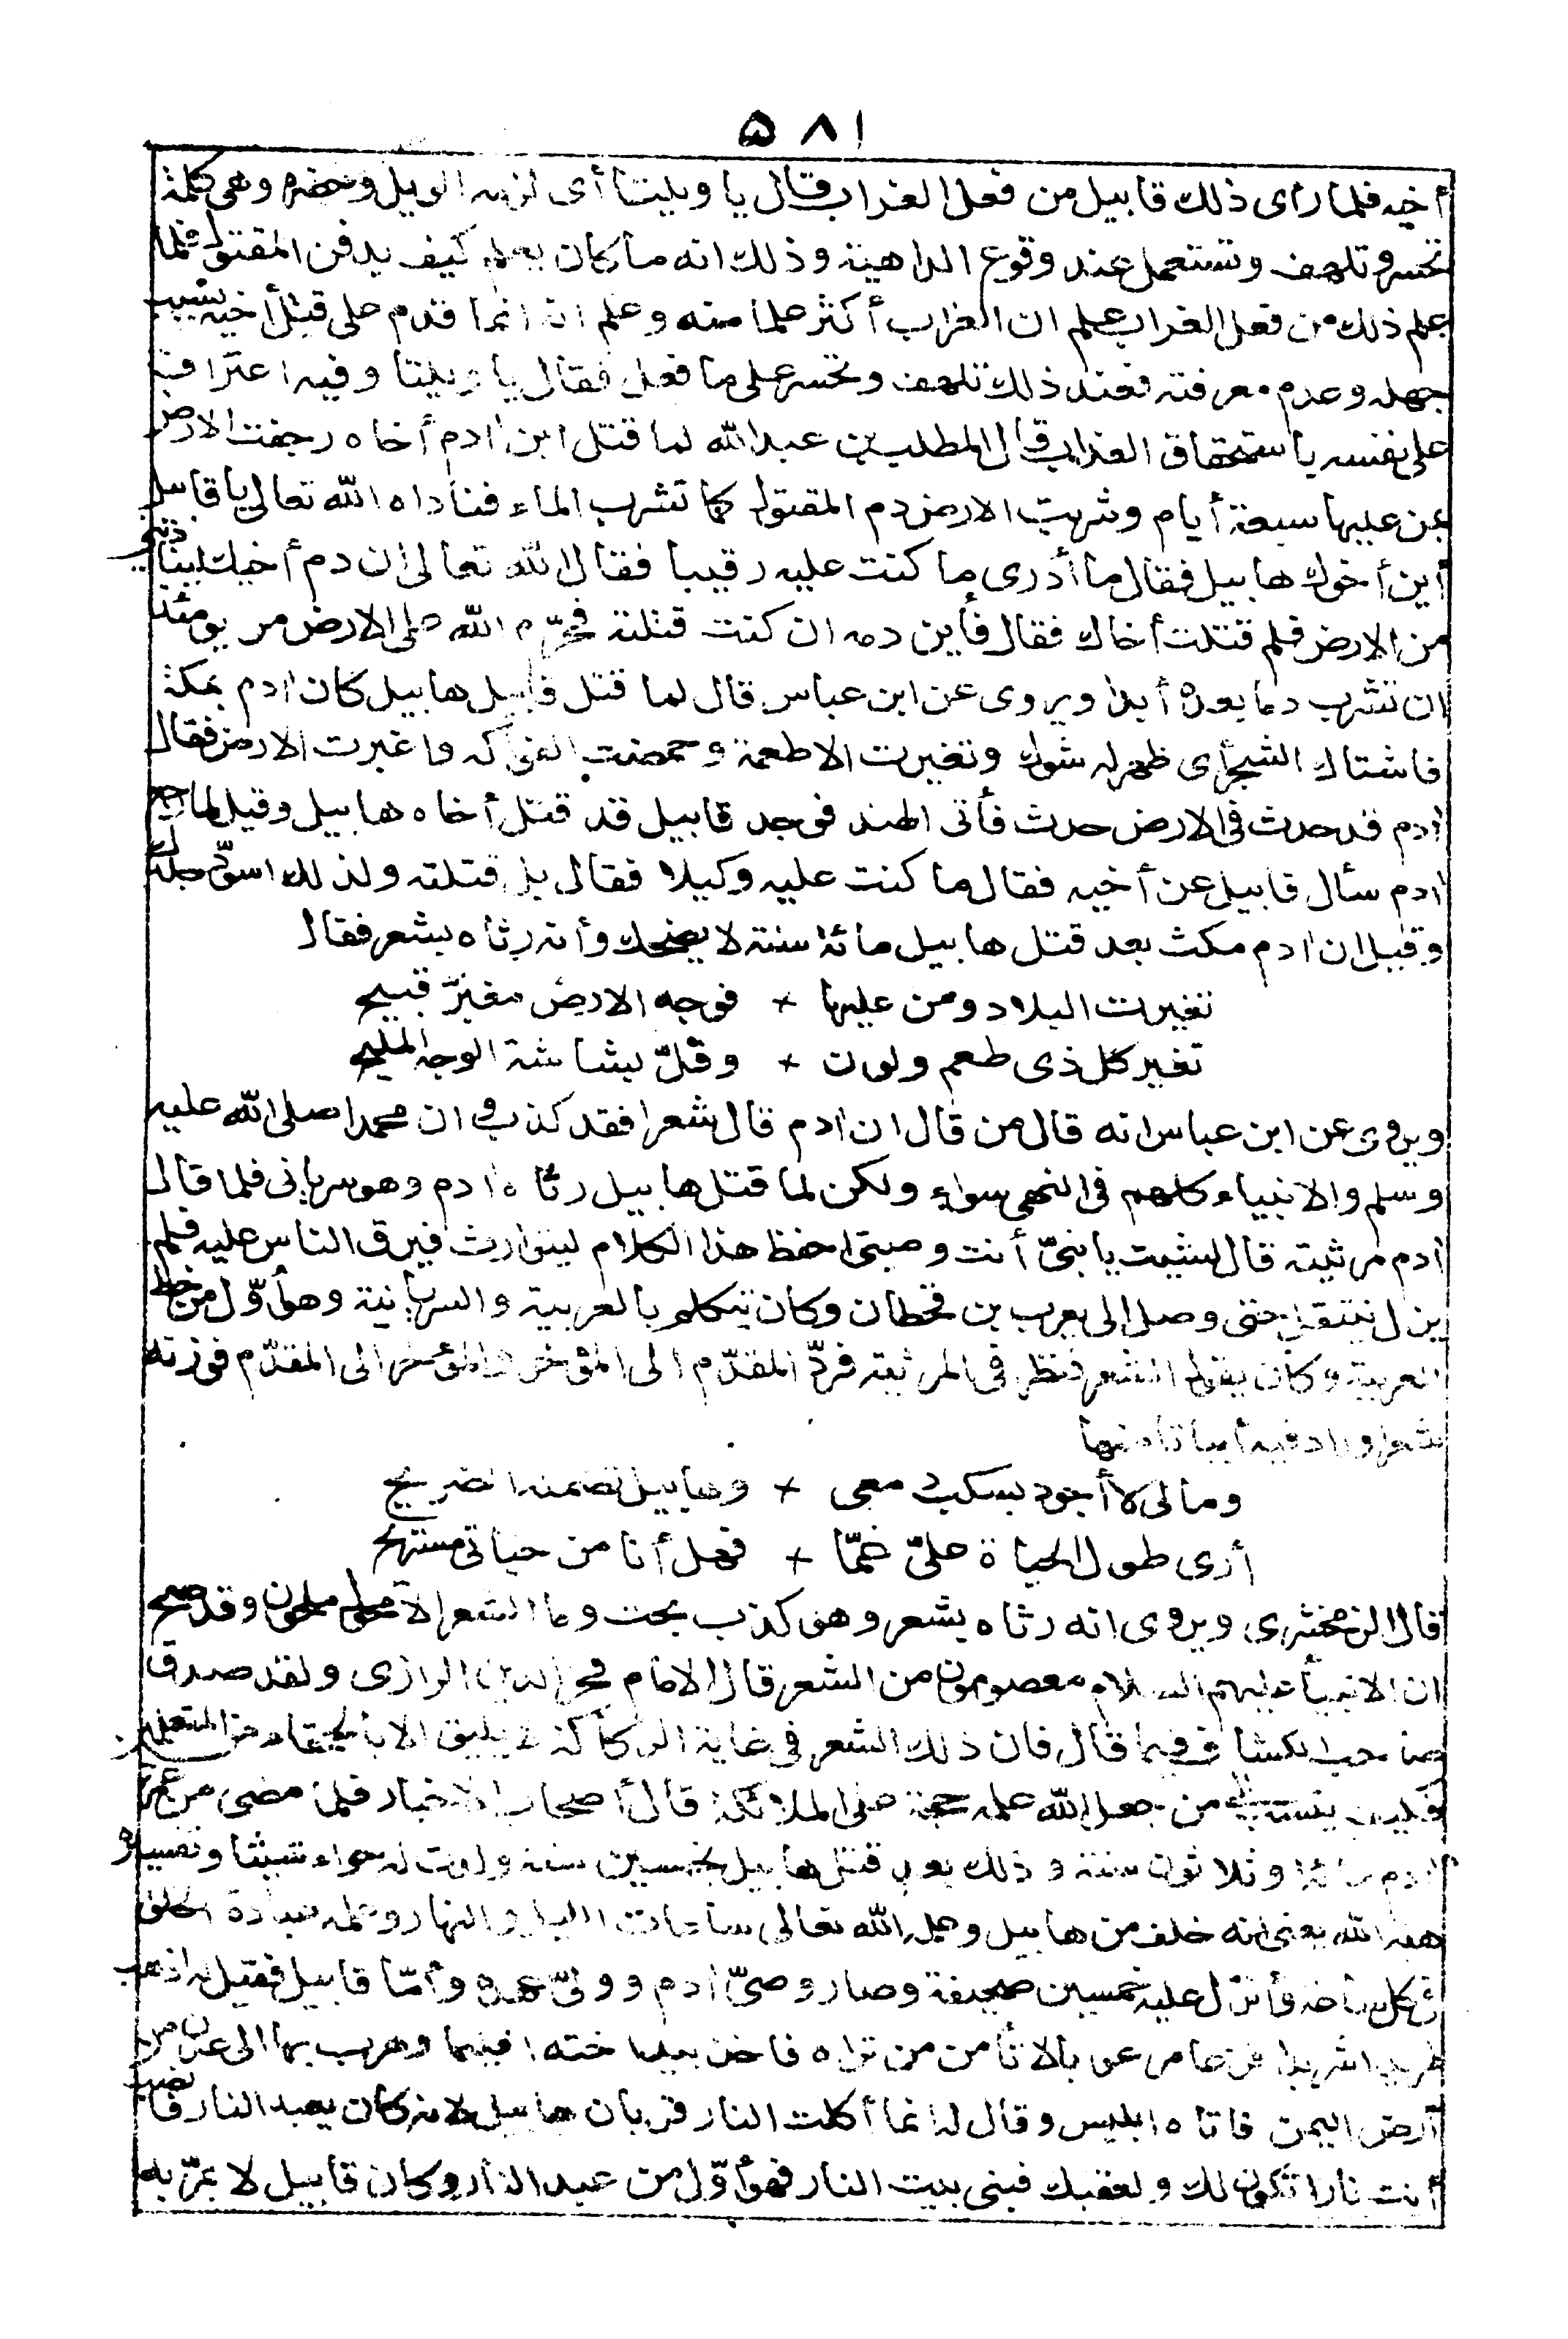 ۵۸۱
أخيه فلما رأى ذلك قابيل من فعل الغراب قال يا ويلتا أى لزمه الويل وحضره وهى كلمة
تحسر وتلهف وتستعمل عند وقوع الداهية وذلك انه ما كان يعلم كيف يدفن المقتول فلما
علم ذلك من فعل الغراب علم ان الغراب أكثر علما منه وعلم انه انما قدم على قتل أخيه بسبب
جهله وعدم معرفته فعند ذلك تلهف وتحسر على ما فعل فقال يا ويلتا وفيه اعتراف
على نفسه باستحقاق العذاب قال المطلب بن عبد الله لما قتل ابن ادم أخاه رجفت الارض
بمن عليها سبعة أيام وشربت الارض دم المقتول كما تشرب الماء فناداه الله تعالى يا قابيل
أين أخوك هابيل فقال ما أدرى ما كنت عليه رقيبا فقال الله تعالى ان دم أخيك ليناديني
من الارض فلم قتلت أخاك فقال فأين دمه ان كنت قتلته فحرّم الله على الارض من يومئذ
ان تشرب دما بعده أبدا ويروى عن ابن عباس قال لما قتل قابيل هابيل كان ادم بمكة
فاشتاك الشجر أى ظهر له شوك وتغيرت الاطعمة وحمضت الفواكه واغبرت الارض فقال
ادم قد حدث فى الارض حدث فأتى الهند فوجد قابيل قد قتل أخاه هابيل وقيل لما رجع
ادم سأل قابيل عن أخيه فقال ما كنت عليه وكيلا فقال بل قتلته ولذلك اسودّ جلدك
وقيل ان ادم مكث بعد قتل هابيل مائة سنة لا يضحك وأنه رثاه بشعر فقال
تغيرت البلاد ومن عليها + فوجه الارض مغبرّ قبيح
تغير كل ذى طعم ولون + وقلّ بشاشة الوجه المليح
ويروى عن ابن عباس انه قال من قال ان ادم قال شعرا فقد كذب وان محمدا صلى الله عليه
وسلم والانبياء كلهم فى النهى سواء ولكن لما قتل هابيل رثاه ادم وهو سريانى فلما قال
ادم مرثيته قال لشيث يا بنىّ أنت وصيتى احفظ هذا الكلام ليتوارث فيرق الناس عليه فلم
يزل ينتقل حتى وصل الى يعرب بن قحطان وكان يتكلم بالعربية والسريانية وهو أوّل من خط
العربية وكان يقول الشعر فنظر فى المرثية فردّ المقدّم الى المؤخر والمؤخر الى المقدّم فوزنه
شعرا وزاد فيه أبياتا منها
ومالى لا أجود بسكب دمعى + وهابيل تضمنه الضريح
أرى طول الحياة علىّ غمّا + فهل أنا من حياتى مستريح
قال الزمخشرى ويروى انه رثاه بشعر وهو كذب بحت وما الشعر الا منحول ملحون وقد صح
ان الانبياء عليهم السلام معصومون من الشعر قال الامام فخر الدين الرازى ولقد صدق
صاحب الكشاف فيما قال فان ذلك الشعر فى غاية الركاكة لا يليق الا بالحمقاء من المتعلمين
فكيف ينسب الى من جعل الله علمه حجة على الملائكة قال أصحاب الاخبار فلما مضى من عمر
ادم مائة وثلاثون سنة وذلك بعد قتل هابيل بخمسين سنة ولدت له حواء شيثا وتفسيره
هبة الله يعنى انه خلف من هابيل وعلمه الله تعالى ساعات الليل والنهار وعلمه عبادة الخلق
فى كل ساعة وأنزل عليه خمسين صحيفة وصار وصىّ ادم وولىّ عهده وأمّا قابيل فقيل له اذهب
طريدا شريدا فزعا مرعوبا لا تأمن من تراه فأخذ بيد اخته اقليما وهرب بها الى عدن من
أرض اليمن فاتاه ابليس وقال له انما أكلت النار قربان هابيل لانه كان يعبد النار فانصب
أنت نارا تكون لك ولعقبك فبنى بيت النار فهو أوّل من عبد النار وكان قابيل لا يمرّ به